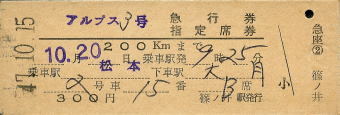 アルプス3号 急行券
指定席券
47.10.15
10.20 200Kmまで
月 日 乗車駅発 9時25分
乗車駅 松本 下車駅 大月
2号車 15番 B席
300円 篠ノ井駅発行
小
急座②
篠ノ井